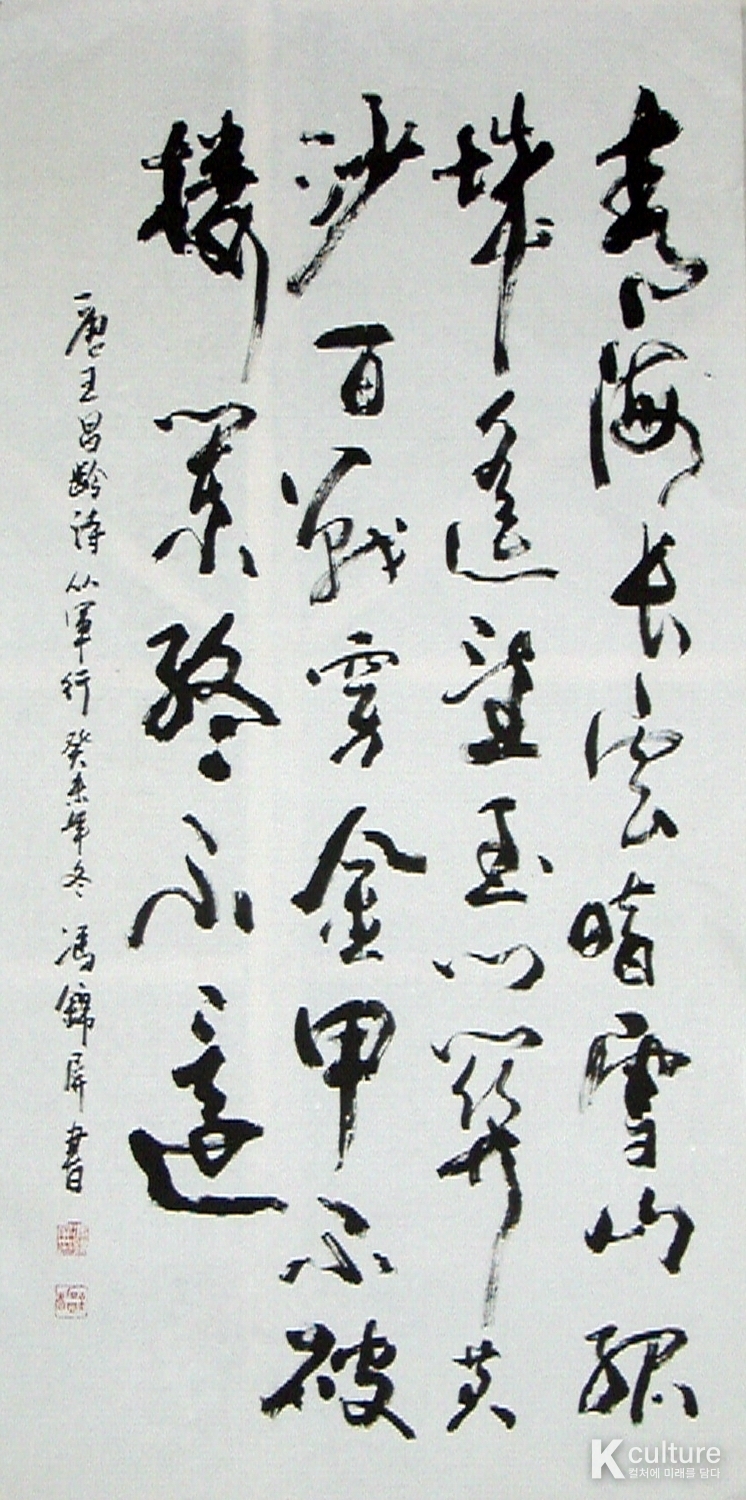 青海长雲暗雪山孤
城遥望玉门關黄
沙百戰穿金甲不破
樓蘭终不還
唐王昌齡诗从軍行 癸未年冬 馮錦屏書
K culture
컬처에 미래를 담다